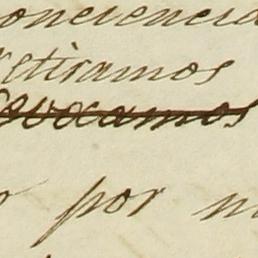 onciencia
retiramos
evocamos
por